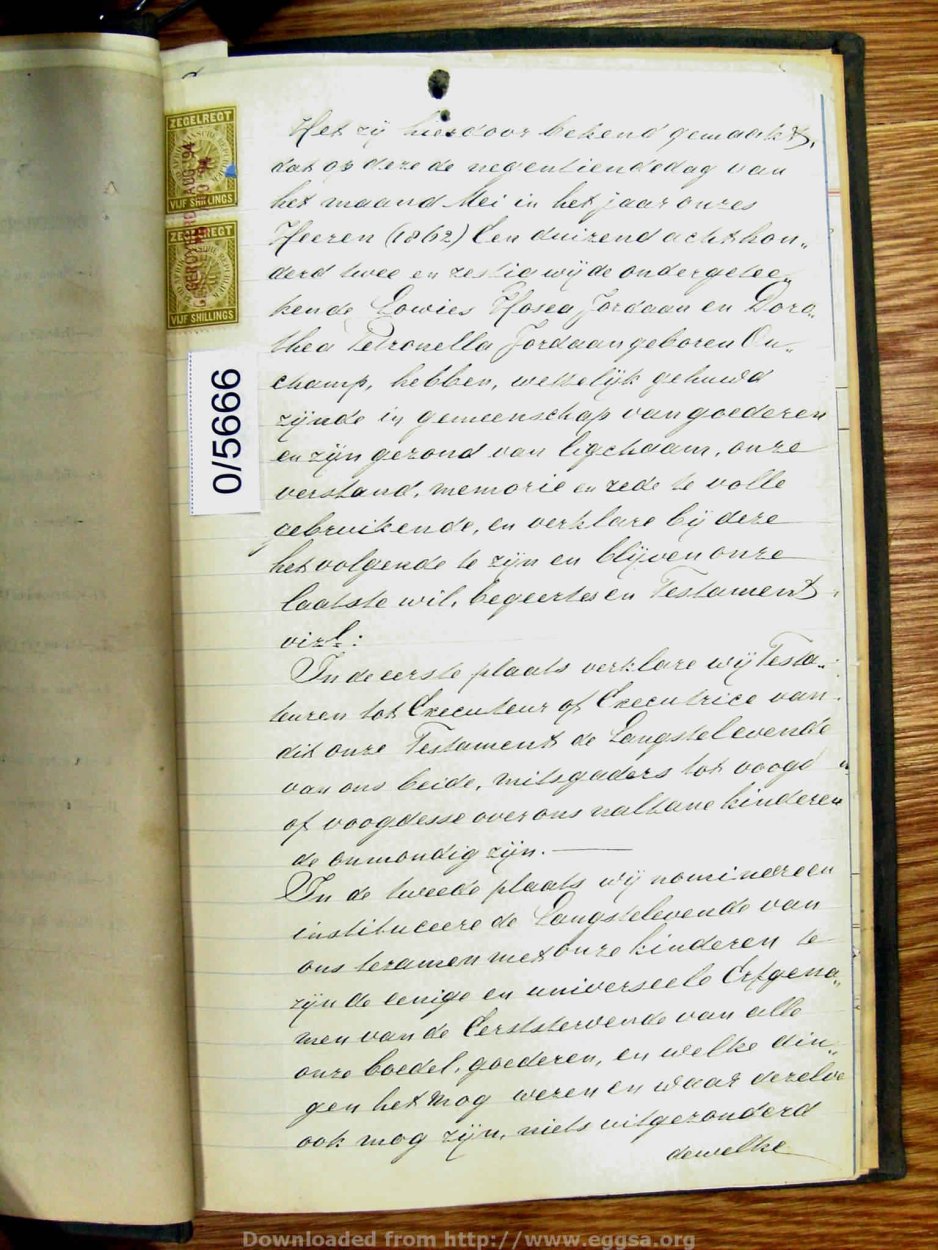 ZEGELREGT
VIJF SHILLINGS
ZEGELREGT
VIJF SHILLINGS
0/5666
Het zij hierdoor bekend gemaakt,
dat op deze de negentiendedag van
het maand Mei in het jaar onzes
Heeren (1862) Een duizend acht hon„
derd twee en zestig wij de ondergetee„
kende Lowies Hosea Jordaan en Doro„
thea Petronella Jordaan geboren On„
champ, hebben, wettelijk gehuwd
zijnde in gemeenschap van goederen
en zijn gezond van ligchaam, onze
verstand, memorie en rede te volle
gebruikende, en verklare bij deze
het volgende te zijn en blijven onze
laatste wil, begeertes en Testament
vizt:
In de eerste plaats verklare wij Testa„
teuren tot Executeur of Executrice van
dit onze Testament de Langstelevende
van ons beide, mitsgaders tot voogd
of voogdesse over ons nallane kinderen
de onmondig zijn.
In de tweede plaats wij nomineere en
instituceere de Langstelevende van
ons tezamen met onze kinderen te
zijn de eenige en universeele Erfgena„
men van de Eerststervende van alle
onze boedel, goederen, en welke din„
gen het mog wezen en waar dezelve
ook mog zijn, niets uitgezonderd
dewelke
Downloaded from http://www.eggsa.org